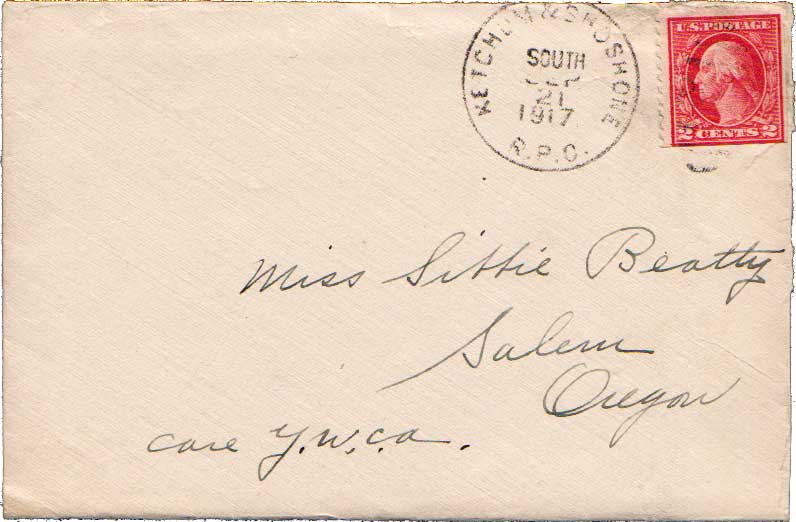 KETCHUM & SHOSHONE
SOUTH
SEP
21
1917
R.P.O.
U.S. POSTAGE
2 CENTS 2
Miss Sittie Beatty
Salem
Oregon
care Y.W.C.A.